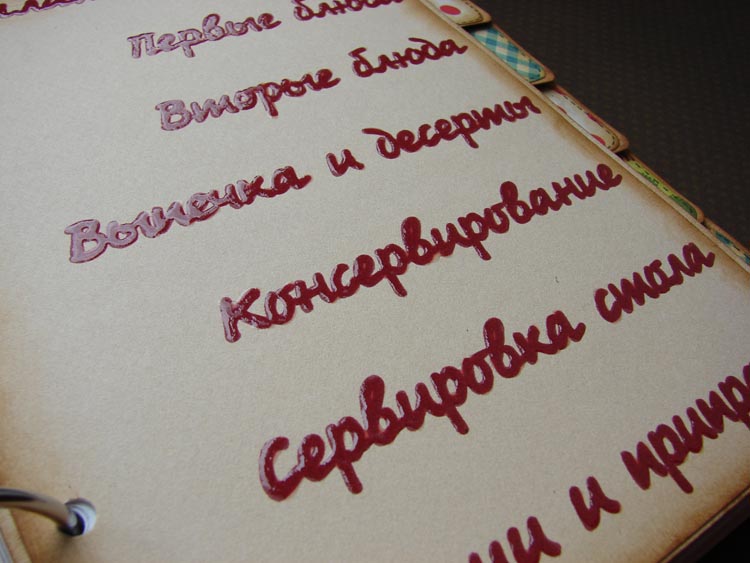 Первые блюда
Вторые блюда
Выпечка и десерты
Консервирование
Сервировка стола
и